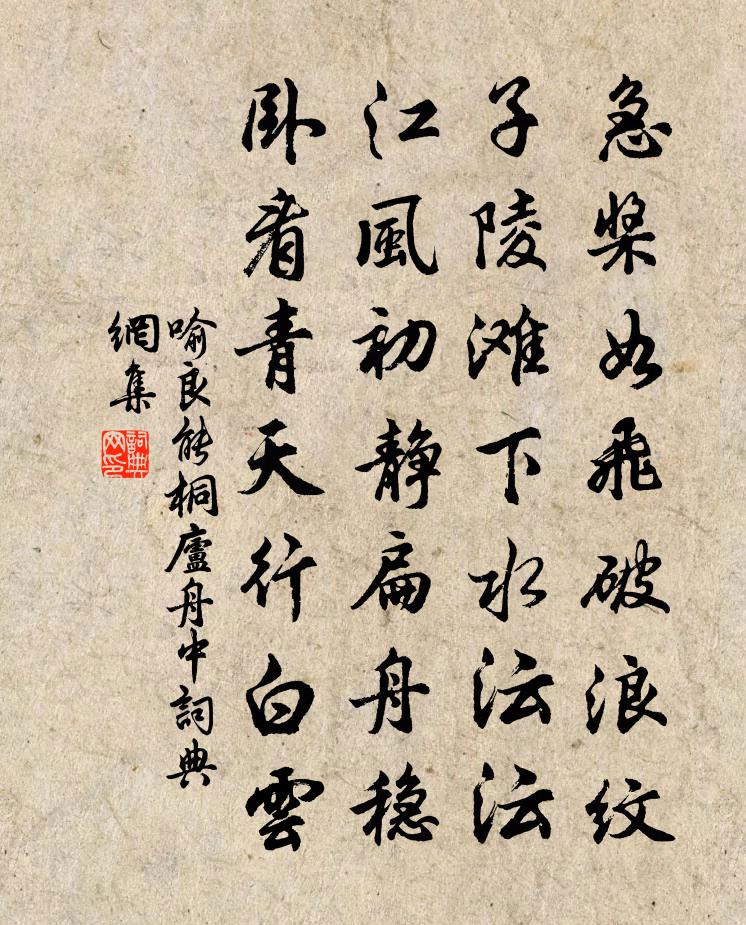 急槳如飛破浪紋
子陵滩下水沄沄
江風初静扁舟穩
卧看青天行白雲
喻良能桐廬舟中詞典
網集
詞典
网印